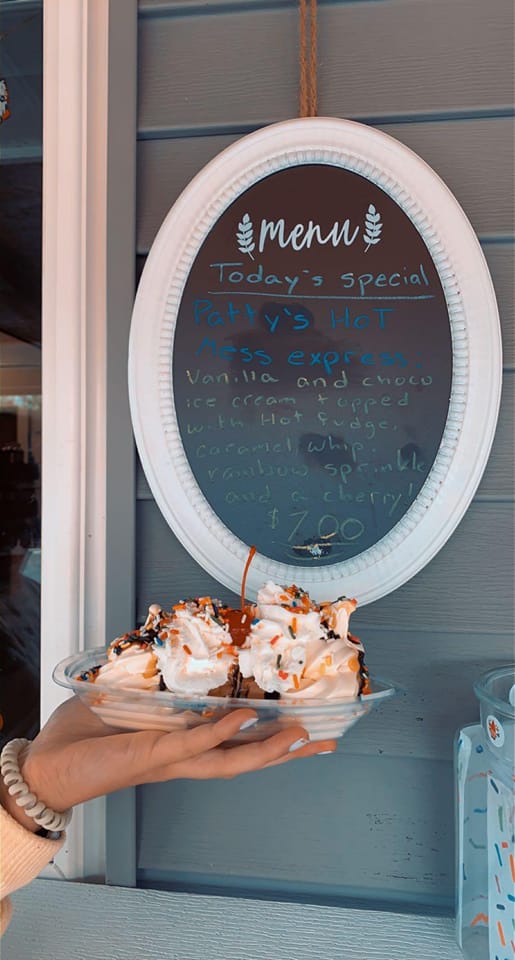 menu
Today's special
Patty's HoT
Mess express:
Vanilla and choco
ice cream topped
with Hot fudge,
caramel, whip,
rainbow sprinkle
and a cherry!
$7.00